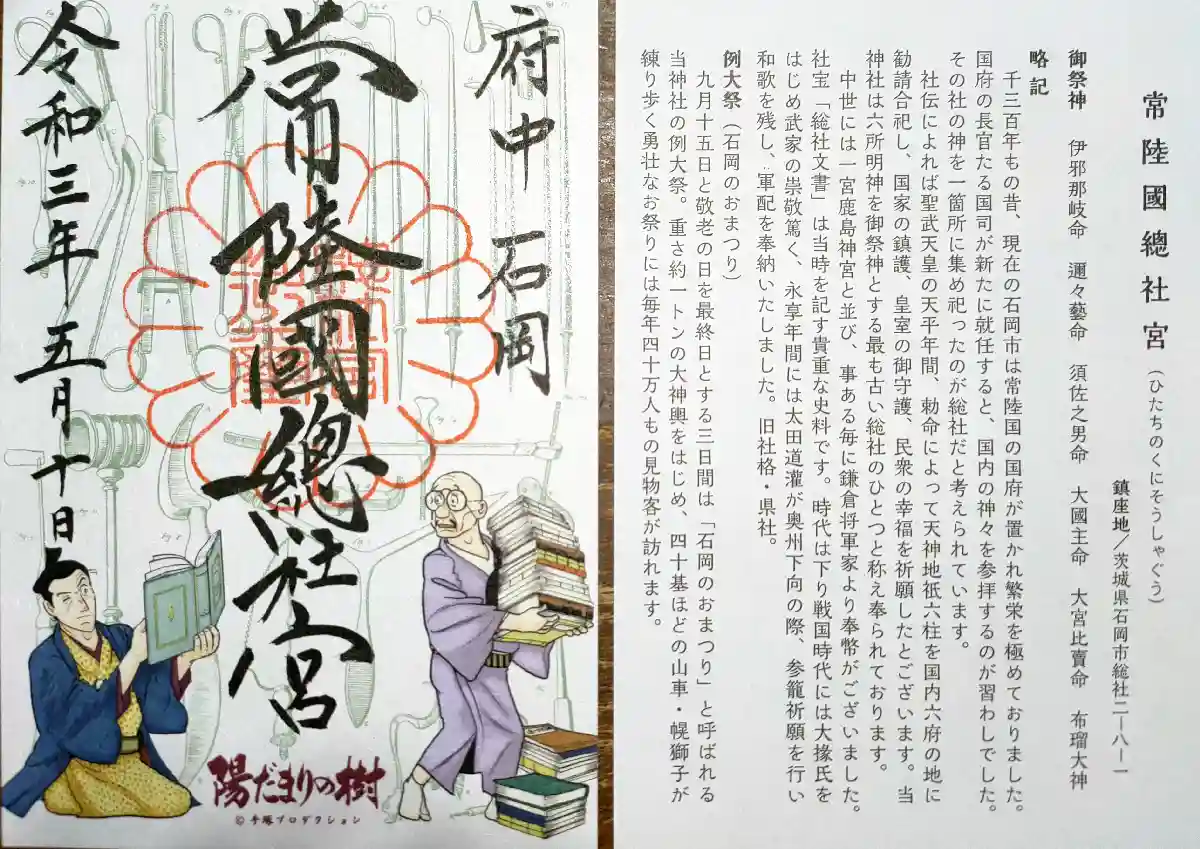 府中 石岡
常陸國總社宮
令和三年 五月十日
陽だまりの樹
©手塚プロダクション
常陸國總社宮(ひたちのくにそうしゃぐう)
鎮座地/茨城県石岡市総社二ー八ー一
御祭神 伊邪那岐命 邇々藝命 須佐之男命 大國主命 大宮比賣命 布瑠大神
略記
千三百年もの昔、現在の石岡市は常陸国の国府が置かれ繁栄を極めておりました。
国府の長官たる国司が新たに就任すると、国内の神々を参拝するのが習わしでした。
その社の神を一箇所に集め祀ったのが総社だと考えられています。
社伝によれば聖武天皇の天平年間、勅命によって天神地祇六柱を国内六府の地に
勧請合祀し、国家の鎮護、皇室の御守護、民衆の幸福を祈願したとございます。当
神社は六所明神を御祭神とする最も古い総社のひとつと称え奉られております。
中世には一宮鹿島神宮と並び、事ある毎に鎌倉将軍家より奉幣がございました。
社宝「総社文書」は当時を記す貴重な史料です。時代は下り戦国時代には大掾氏を
はじめ武家の崇敬篤く、永享年間には太田道灌が奥州下向の際、参籠祈願を行い
和歌を残し、軍配を奉納いたしました。旧社格・県社。
例大祭(石岡のおまつり)
九月十五日と敬老の日を最終日とする三日間は「石岡のおまつり」と呼ばれる
当神社の例大祭。重さ約一トンの大神輿をはじめ、四十基ほどの山車・幌獅子が
練り歩く勇壮なお祭りには毎年四十万人もの見物客が訪れます。